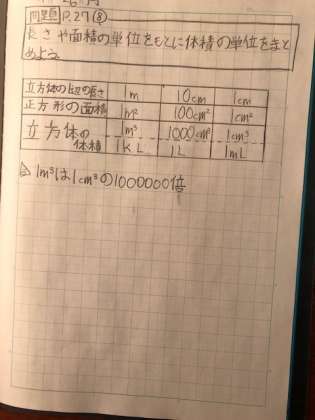 問題 P.27 ⑧
長さや面積の単位をもとに体積の単位をまと
めよう。
立方体の1辺の長さ 1m 10cm 1cm
正方形の面積 1m² 100cm² 1cm²
立方体の体積 1m³ 1000cm³ 1cm³
1kL 1L 1mL
1m³は1cm³の1000000倍